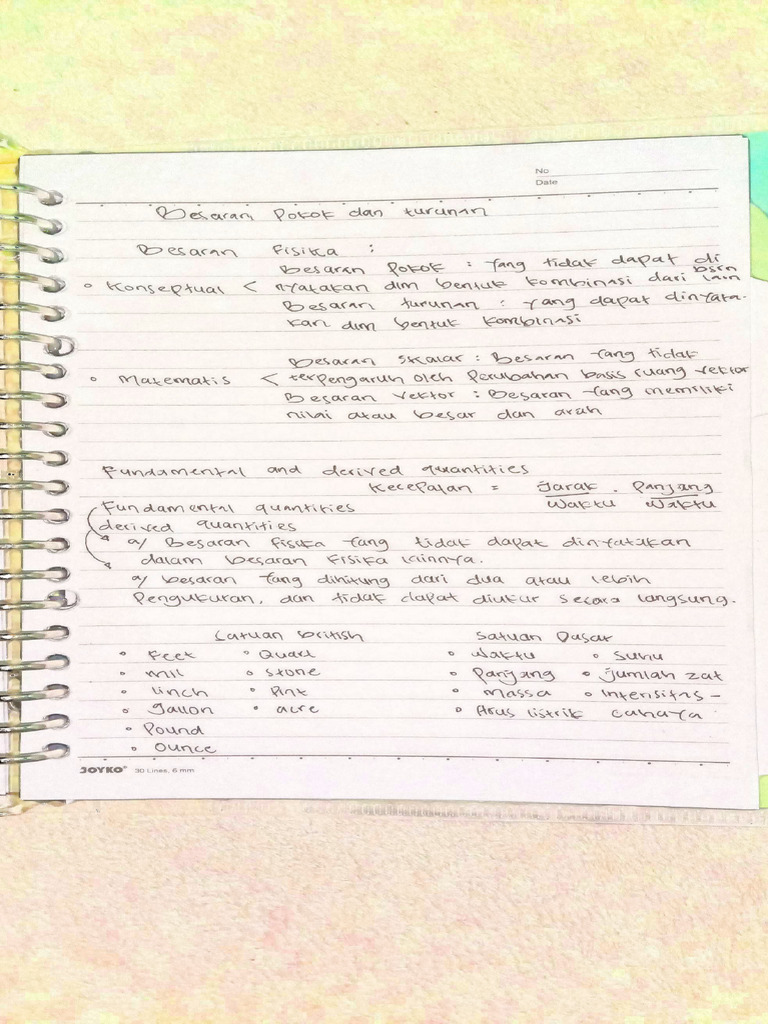 No
Date
Besaran Pokok dan turunan
Besaran Fisika :
Besaran Pokok : Yang tidak dapat di
• Konseptual < nyatakan dlm bentuk kombinasi dari bsrn lain
Besaran turunan : yang dapat dinyata-
kan dlm bentuk kombinasi
Besaran skalar : Besaran Yang tidak
• Matematis < terpengaruh oleh Perubahan basis ruang vektor
Besaran vektor : Besaran Yang memiliki
nilai atau besar dan arah
Fundamental and derived quantities
Kecepatan = Jarak . Panjang
Waktu Waktu
Fundamental quantities
derived quantities
a/ Besaran fisika Yang tidak dapat dinyatakan
dalam besaran Fisika lainnya.
a/ besaran Yang dihitung dari dua atau lebih
Pengukuran, dan tidak dapat diukur secara langsung.
Satuan british Satuan Dasar
• Feet • Quart • Waktu • Suhu
• mil • stone • Panjang • Jumlah zat
• linch • Pint • Massa • Intensitas -
• Gallon • acre • Arus listrik cahaya
• Pound
• Ounce
JOYKO 30 Lines, 6 mm